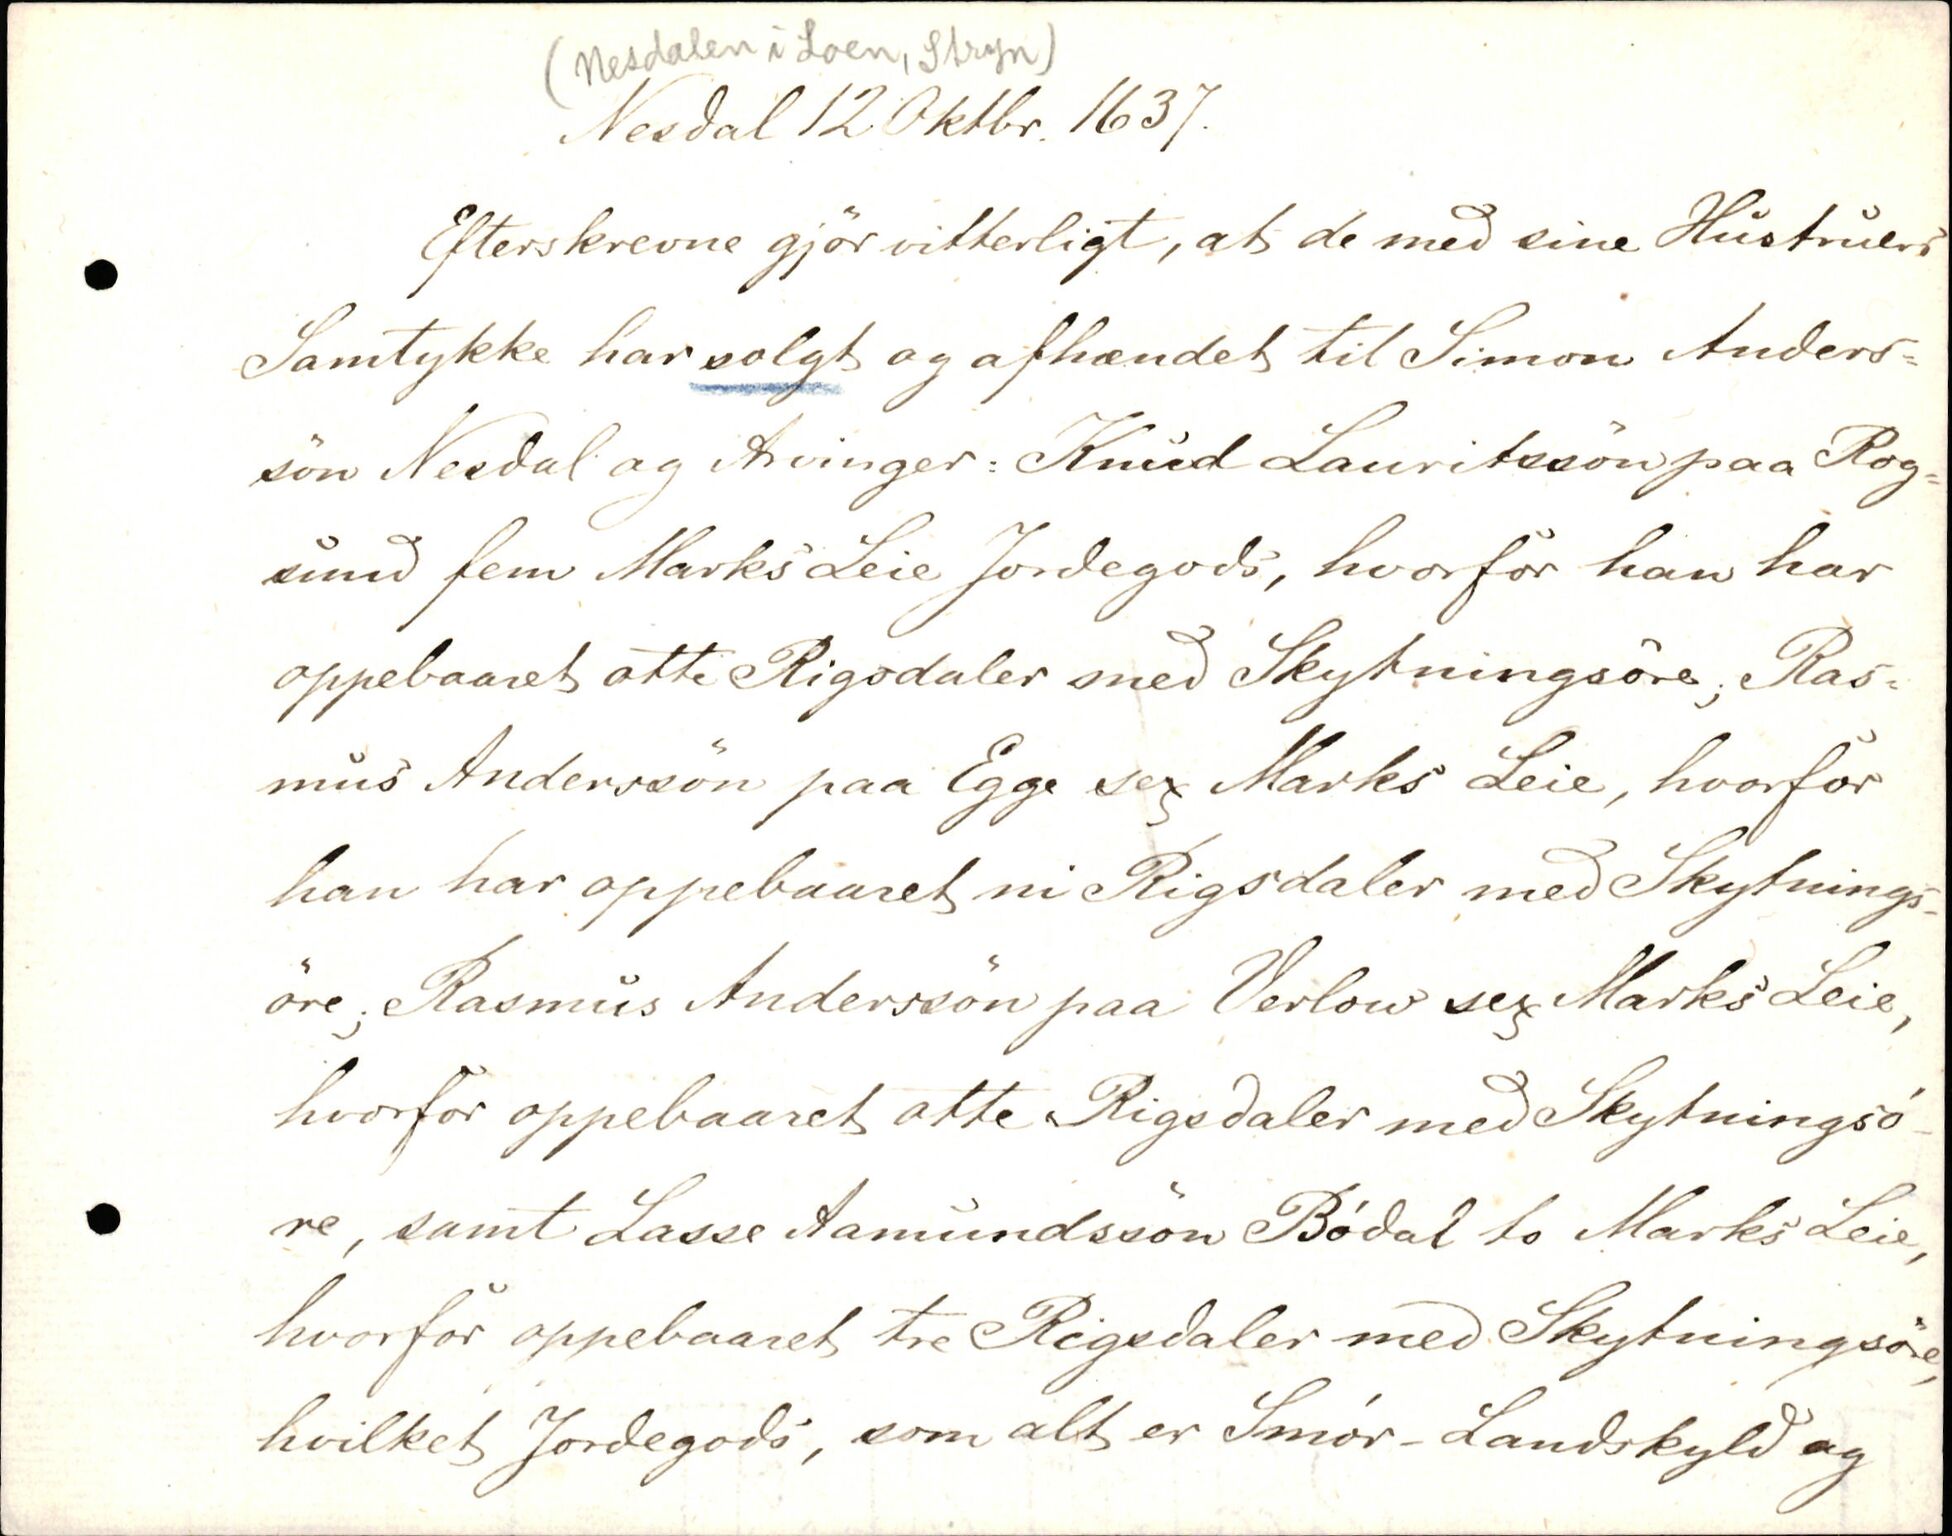 (Nesdalen i Loen, Stryn)
Nesdal 12 Oktbr. 1637.
Efterskrevne gjör vitterligt, at de med sine Hustruers
Samtykke har solgt og afhændet til Simon Anders=
sön Nesdal og Arvinger: Knud Lauritssön paa Rog=
sund fem Marks Leie Jordegods, hvorför han har
oppebaaret otte Rigsdaler med Skytningsöre; Ras=
mus Anderssön paa Egge sex Marks Leie, hvorför
han har oppebaaret ni Rigsdaler med Skytnings-
öre; Rasmus Anderssön paa Verlow sex Marks Leie,
hvorför oppebaaret otte Rigsdaler med Skytningsó-
re, samt Lasse Aamundssön Bódal to Marks Leie,
hvorför oppebaaret tre Rigsdaler med Skytningsöre,
hvilket Jordegods, som alt er Smór-Landskyld og